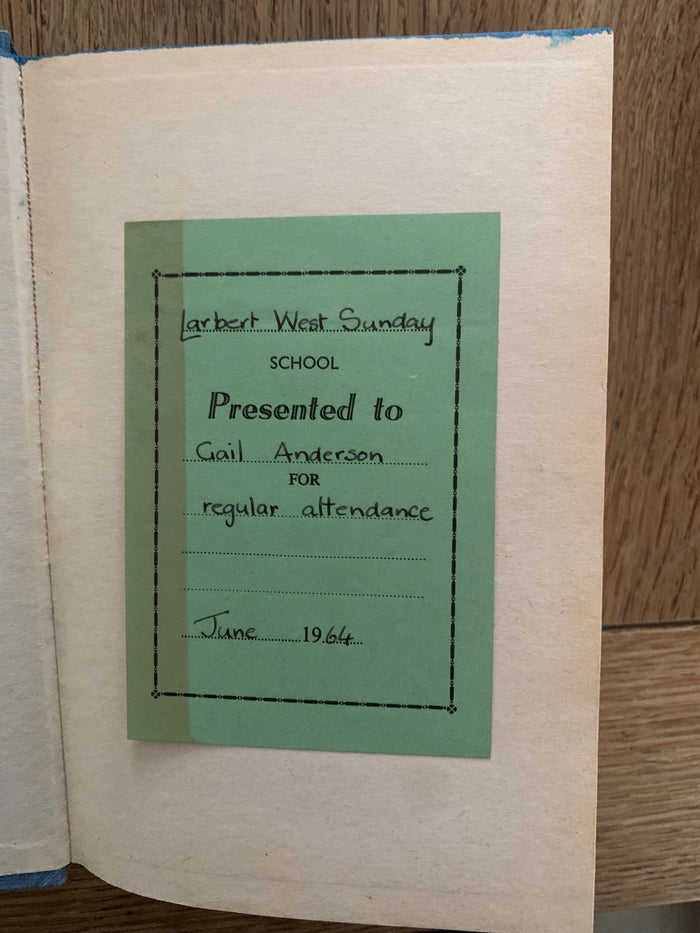 Larbert West Sunday
SCHOOL
Presented to
Gail Anderson
FOR
regular attendance
June 1964